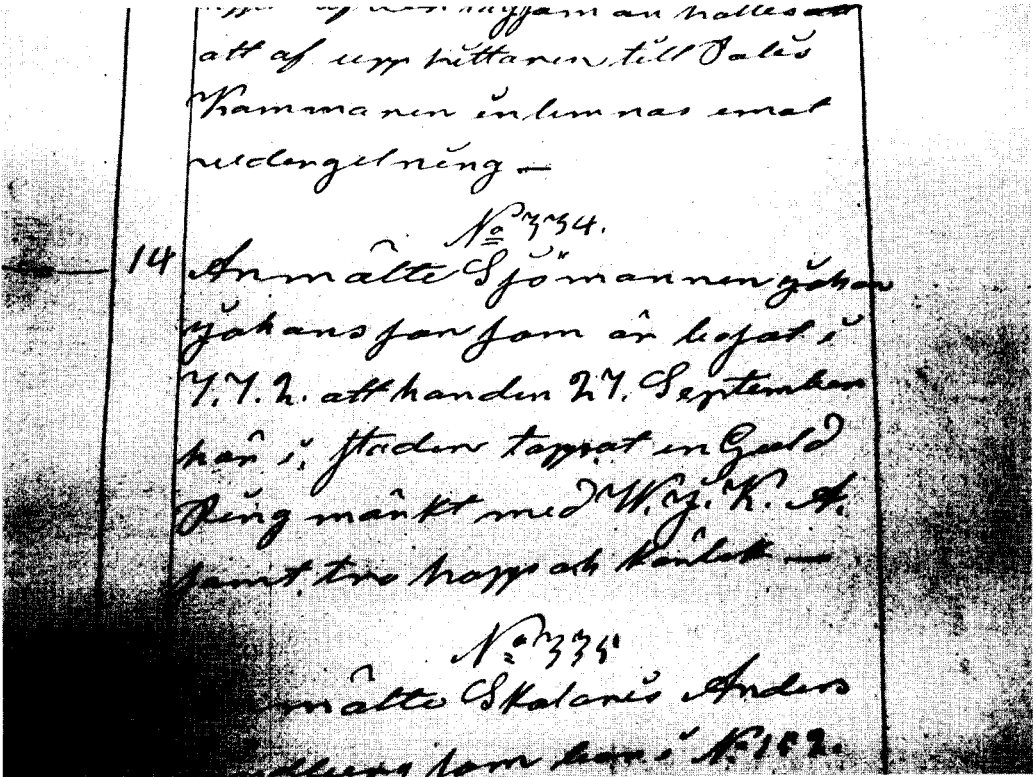 att af upphittaren till Polis
Kammaren inlemnas emot
vedergelning —
No 334.
14 Anmälte Sjömannen Johan
Johansson som är bosat i
7.7.2. att han den 27. September
här i staden tappat en Guld
Ring märkt med W. J. K. A.
samt tro hopp och kärlek —
No 335
mälte Skolaris Anders
som bor i No 182.